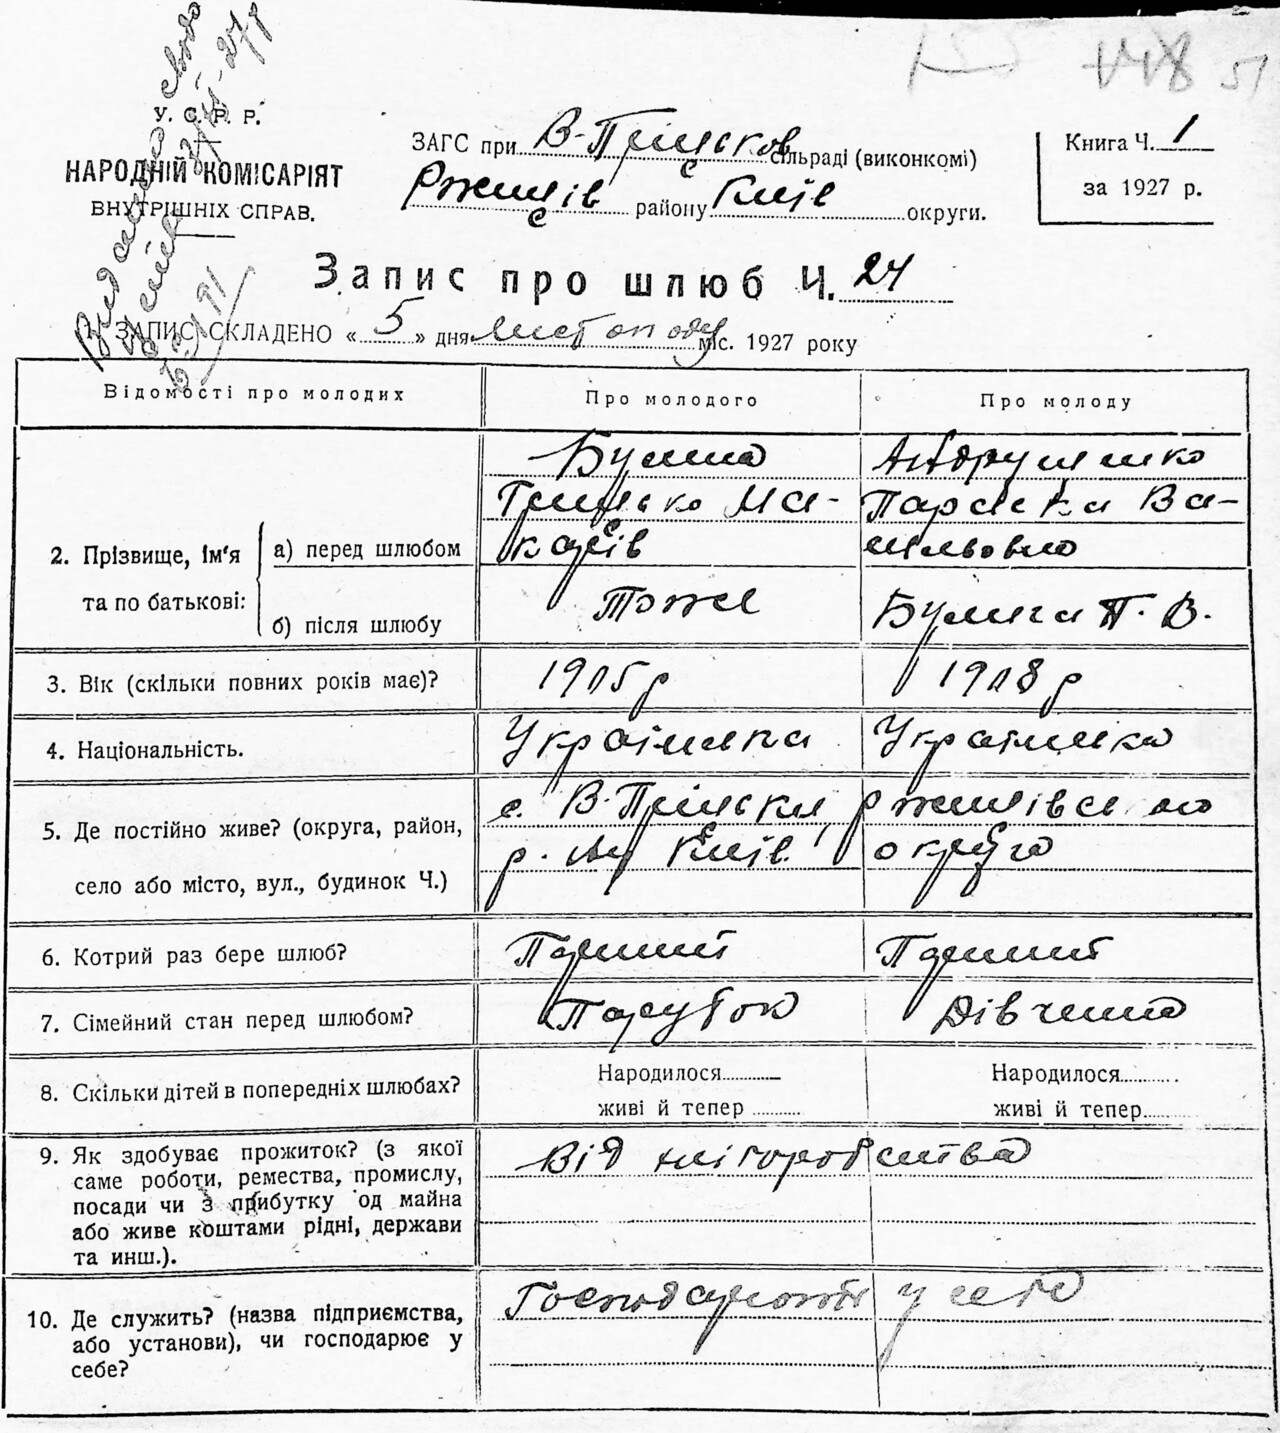 155 148 51
У. С. Р. Р.
НАРОДНІЙ КОМІСАРІЯТ
ВНУТРІШНІХ СПРАВ.
ЗАГС при В-Пріцьков сільраді (виконкомі)
Ржищів району Київ округи.
Книга Ч. 1
за 1927 р.
Запис про шлюб Ч. 24
ЗАПИС СКЛАДЕНО « 5 » дня листопаду міс. 1927 року
Відомості про молодих Про молодого Про молоду
2. Прізвище, ім'я та по батькові:
а) перед шлюбом
Булига
Грицько Ма-
карів
Андрущенко
Параска Ва-
сильовно
б) після шлюбу Тоже Булига П. В.
3. Вік (скільки повних років має)? 1905 р 1908 р
4. Національність. Українка Українка
5. Де постійно живе? (округа, район,
село або місто, вул., будинок Ч.)
с. В-Пріцьки, ржищівського
р-ну Київ. округа
6. Котрий раз бере шлюб? Перший Перший
7. Сімейний стан перед шлюбом? Парубок Дівчина
8. Скільки дітей в попередніх шлюбах? Народилося Народилося
живі й тепер живі й тепер
9. Як здобуває прожиток? (з якої
саме роботи, ремества, промислу,
посади чи з прибутку од майна
або живе коштами рідні, держави
та инш.).
Від хлібороб ства
10. Де служить? (назва підприємства,
або установи), чи господарює у
себе?
Господарють у себе